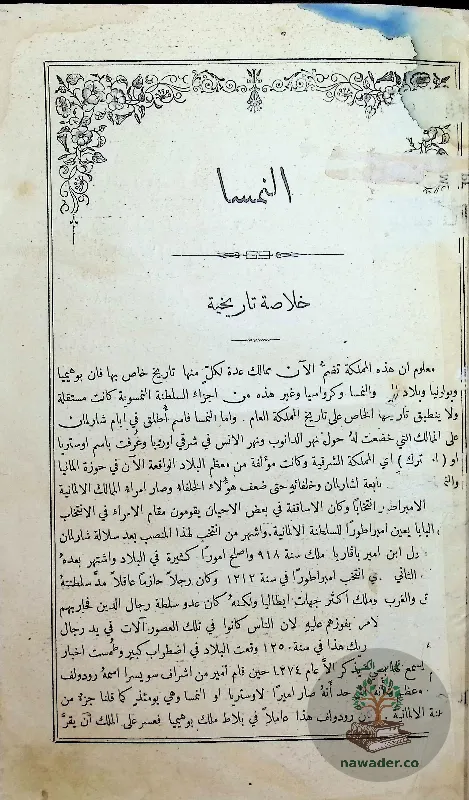 النمسا
خلاصة تاريخية
معلوم ان هذه المملكة تضم الآن ممالك عدة لكلٍ منها تاريخ خاص بها فان بوهيميا
وبولونيا وبلاد والنمسا وكرواسيا وغير هذه من اجزاء السلطنة النمسوية كانت مستقلة
ولا ينطبق تاريخها الخاص على تاريخ المملكة العام . واما النمسا فاسم أُطلق في ايام شارلمان
على الممالك التي خضعت لهُ حول نهر الدانوب ونهر الانس في شرقي اوروبا وعُرفت باسم اوستريا
او ( ترك ) اي المملكة الشرقية وكانت مؤلفة من معظم البلاد الواقعة الآن في حوزة المانيا
تابعة لشارلمان وخلفائه حتى ضعف هؤلاء الخلفاء وصار امراء الممالك الالمانية
الامبراطور انتخابًا وكان الاساقفة في بعض الاحيان يقومون مقام الامراء في الانتخاب
البابا يعين امبراطورًا للسلطنة الالمانية . واشهر من انتخب لهذا المنصب بعد سلالة شارلمان
ابن امير بافاريا ملك سنة ٩٤٨ واصلح امورًا كثيرة في البلاد واشتهر بعدهُ
الثاني انتخب امبراطورًا في سنة ١٢١٢ وكان رجلاً حازمًا عاقلاً مدَّ سلطنته
والغرب وملك اكثر جهات ايطاليا ولكنهُ كان عدو سلطة رجال الدين فحاربهم
بفوزهم عليه لان الناس كانوا في تلك العصور آلات في يد رجال
هذا في سنة ١٢٥٠ وقعت البلاد في اضطراب كبير وطُمست اخبار
يسمع ذكر الاَّ عام ١٢٧٤ حين قام أمير من اشراف سويسرا اسمهُ رودولف
حد أنهُ صار اميرًا لاوستريا او النمسا وهي يومئذٍ كما قلنا جزء من
الالمانية رودولف هذا عاملاً في بلاط ملك بوهيميا فعسر على الملك أن يقرَّ
nawader.co